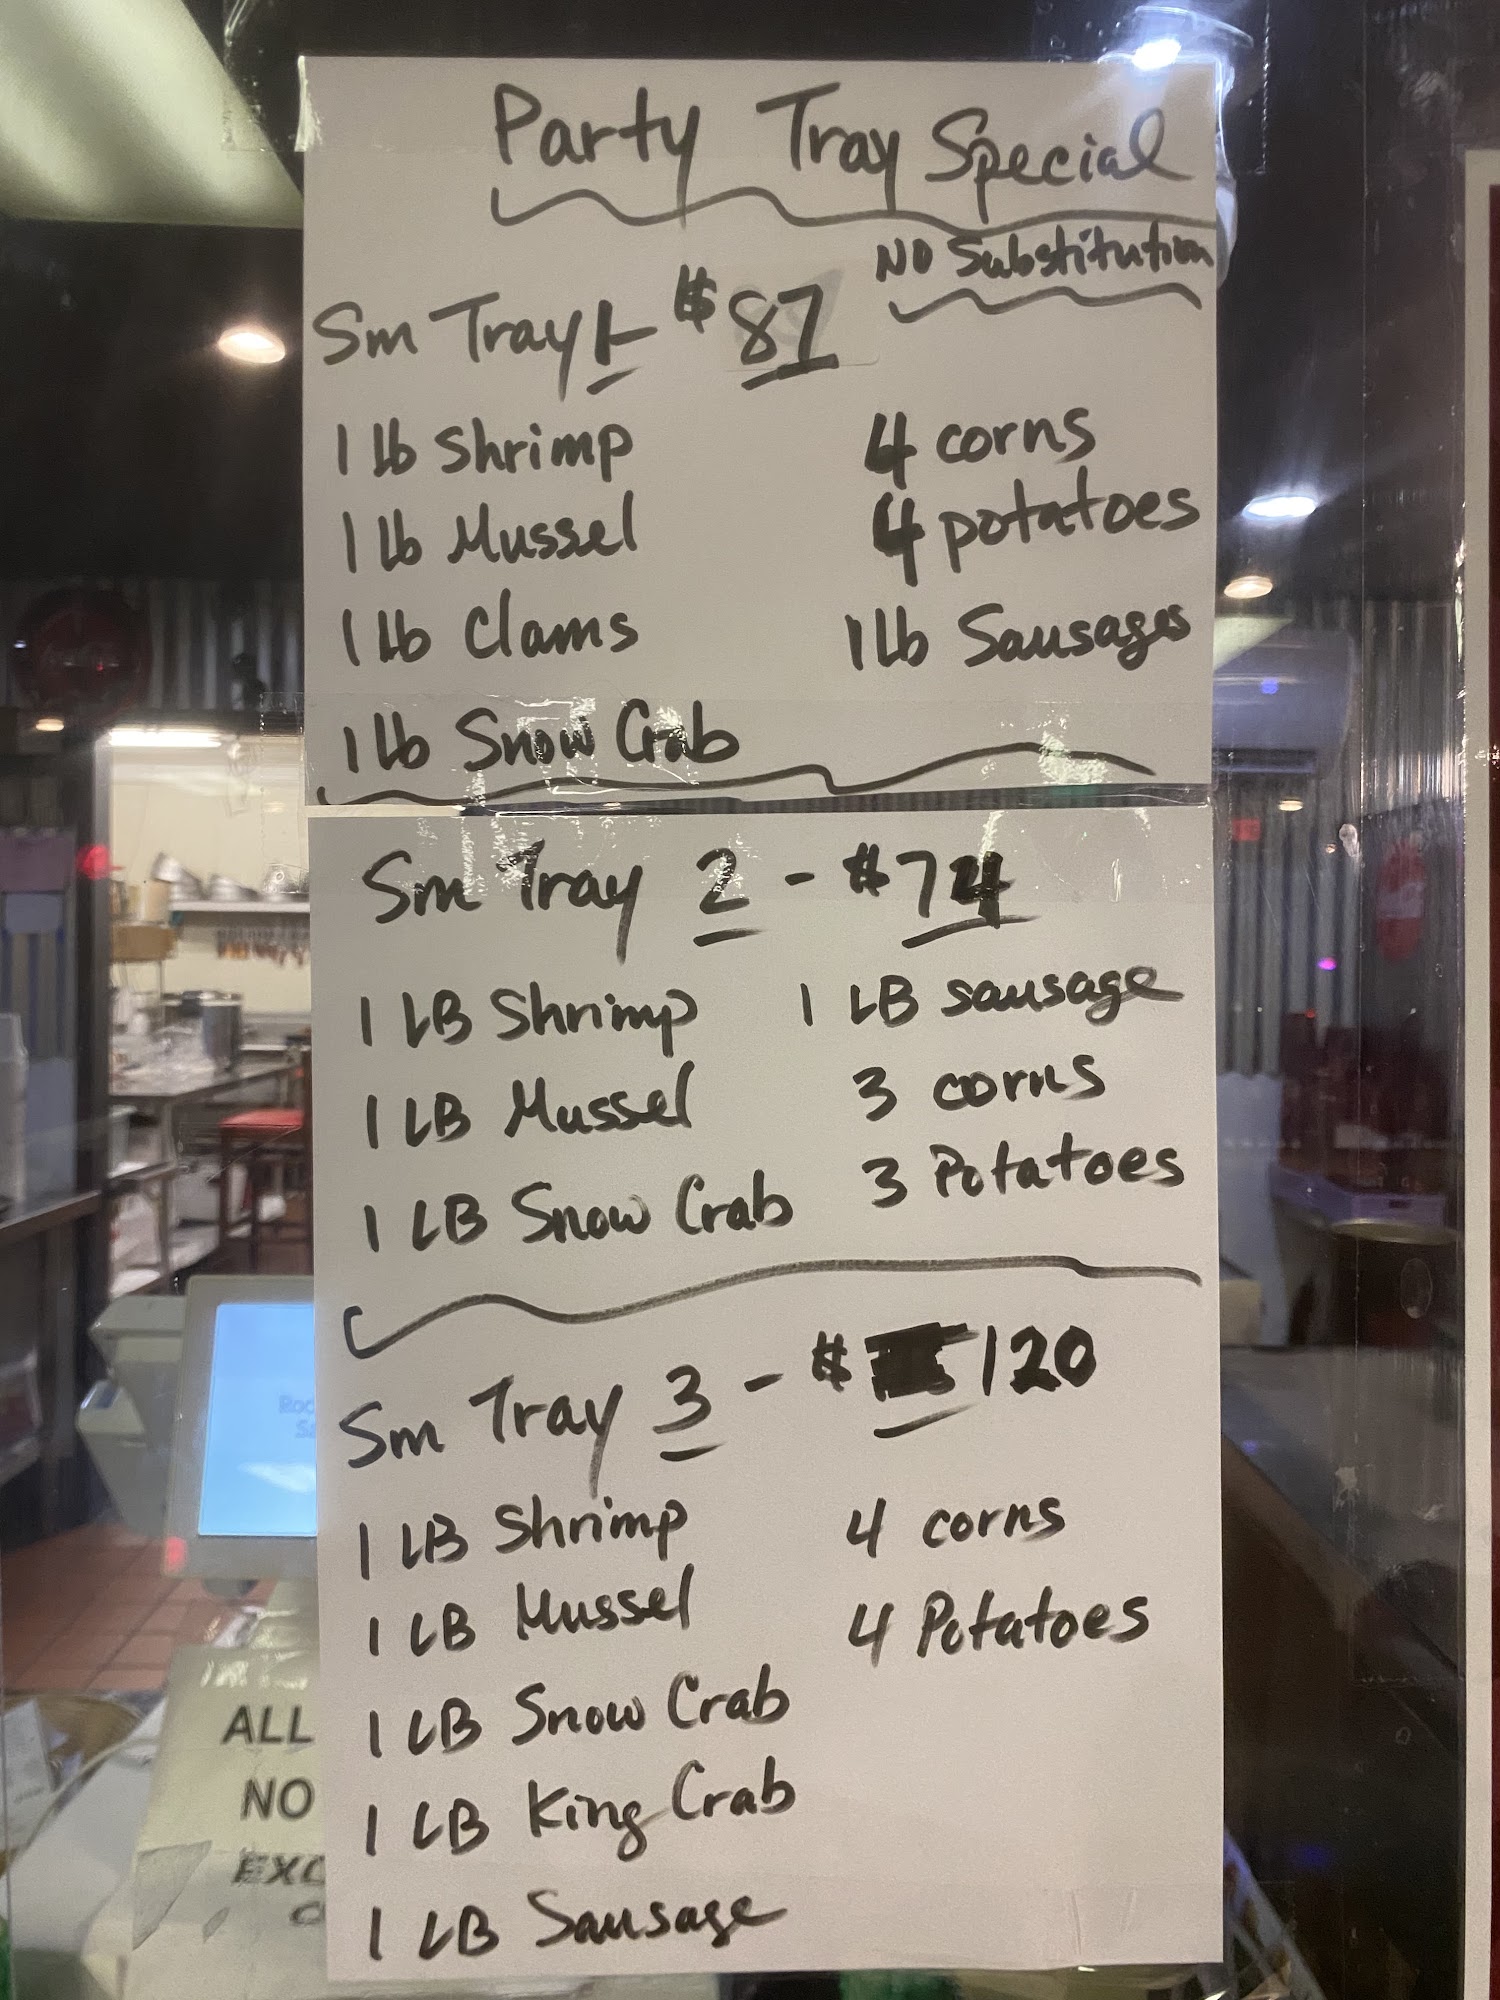 Party Tray Special
No Substitution
Sm Tray 1- $87
1 lb Shrimp
1 lb Mussel
1 lb Clams
1 lb Snow Crab
4 corns
4 potatoes
1 lb Sausages
Sm Tray 2 - $74
1 LB Shrimp
1 LB Mussel
1 LB Snow Crab
1 LB sausage
3 corns
3 Potatoes
Sm Tray 3 - $120
1 LB Shrimp
1 LB Mussel
1 LB Snow Crab
1 LB King Crab
1 LB Sausage
4 corns
4 Potatoes
ALL
NO
EXC